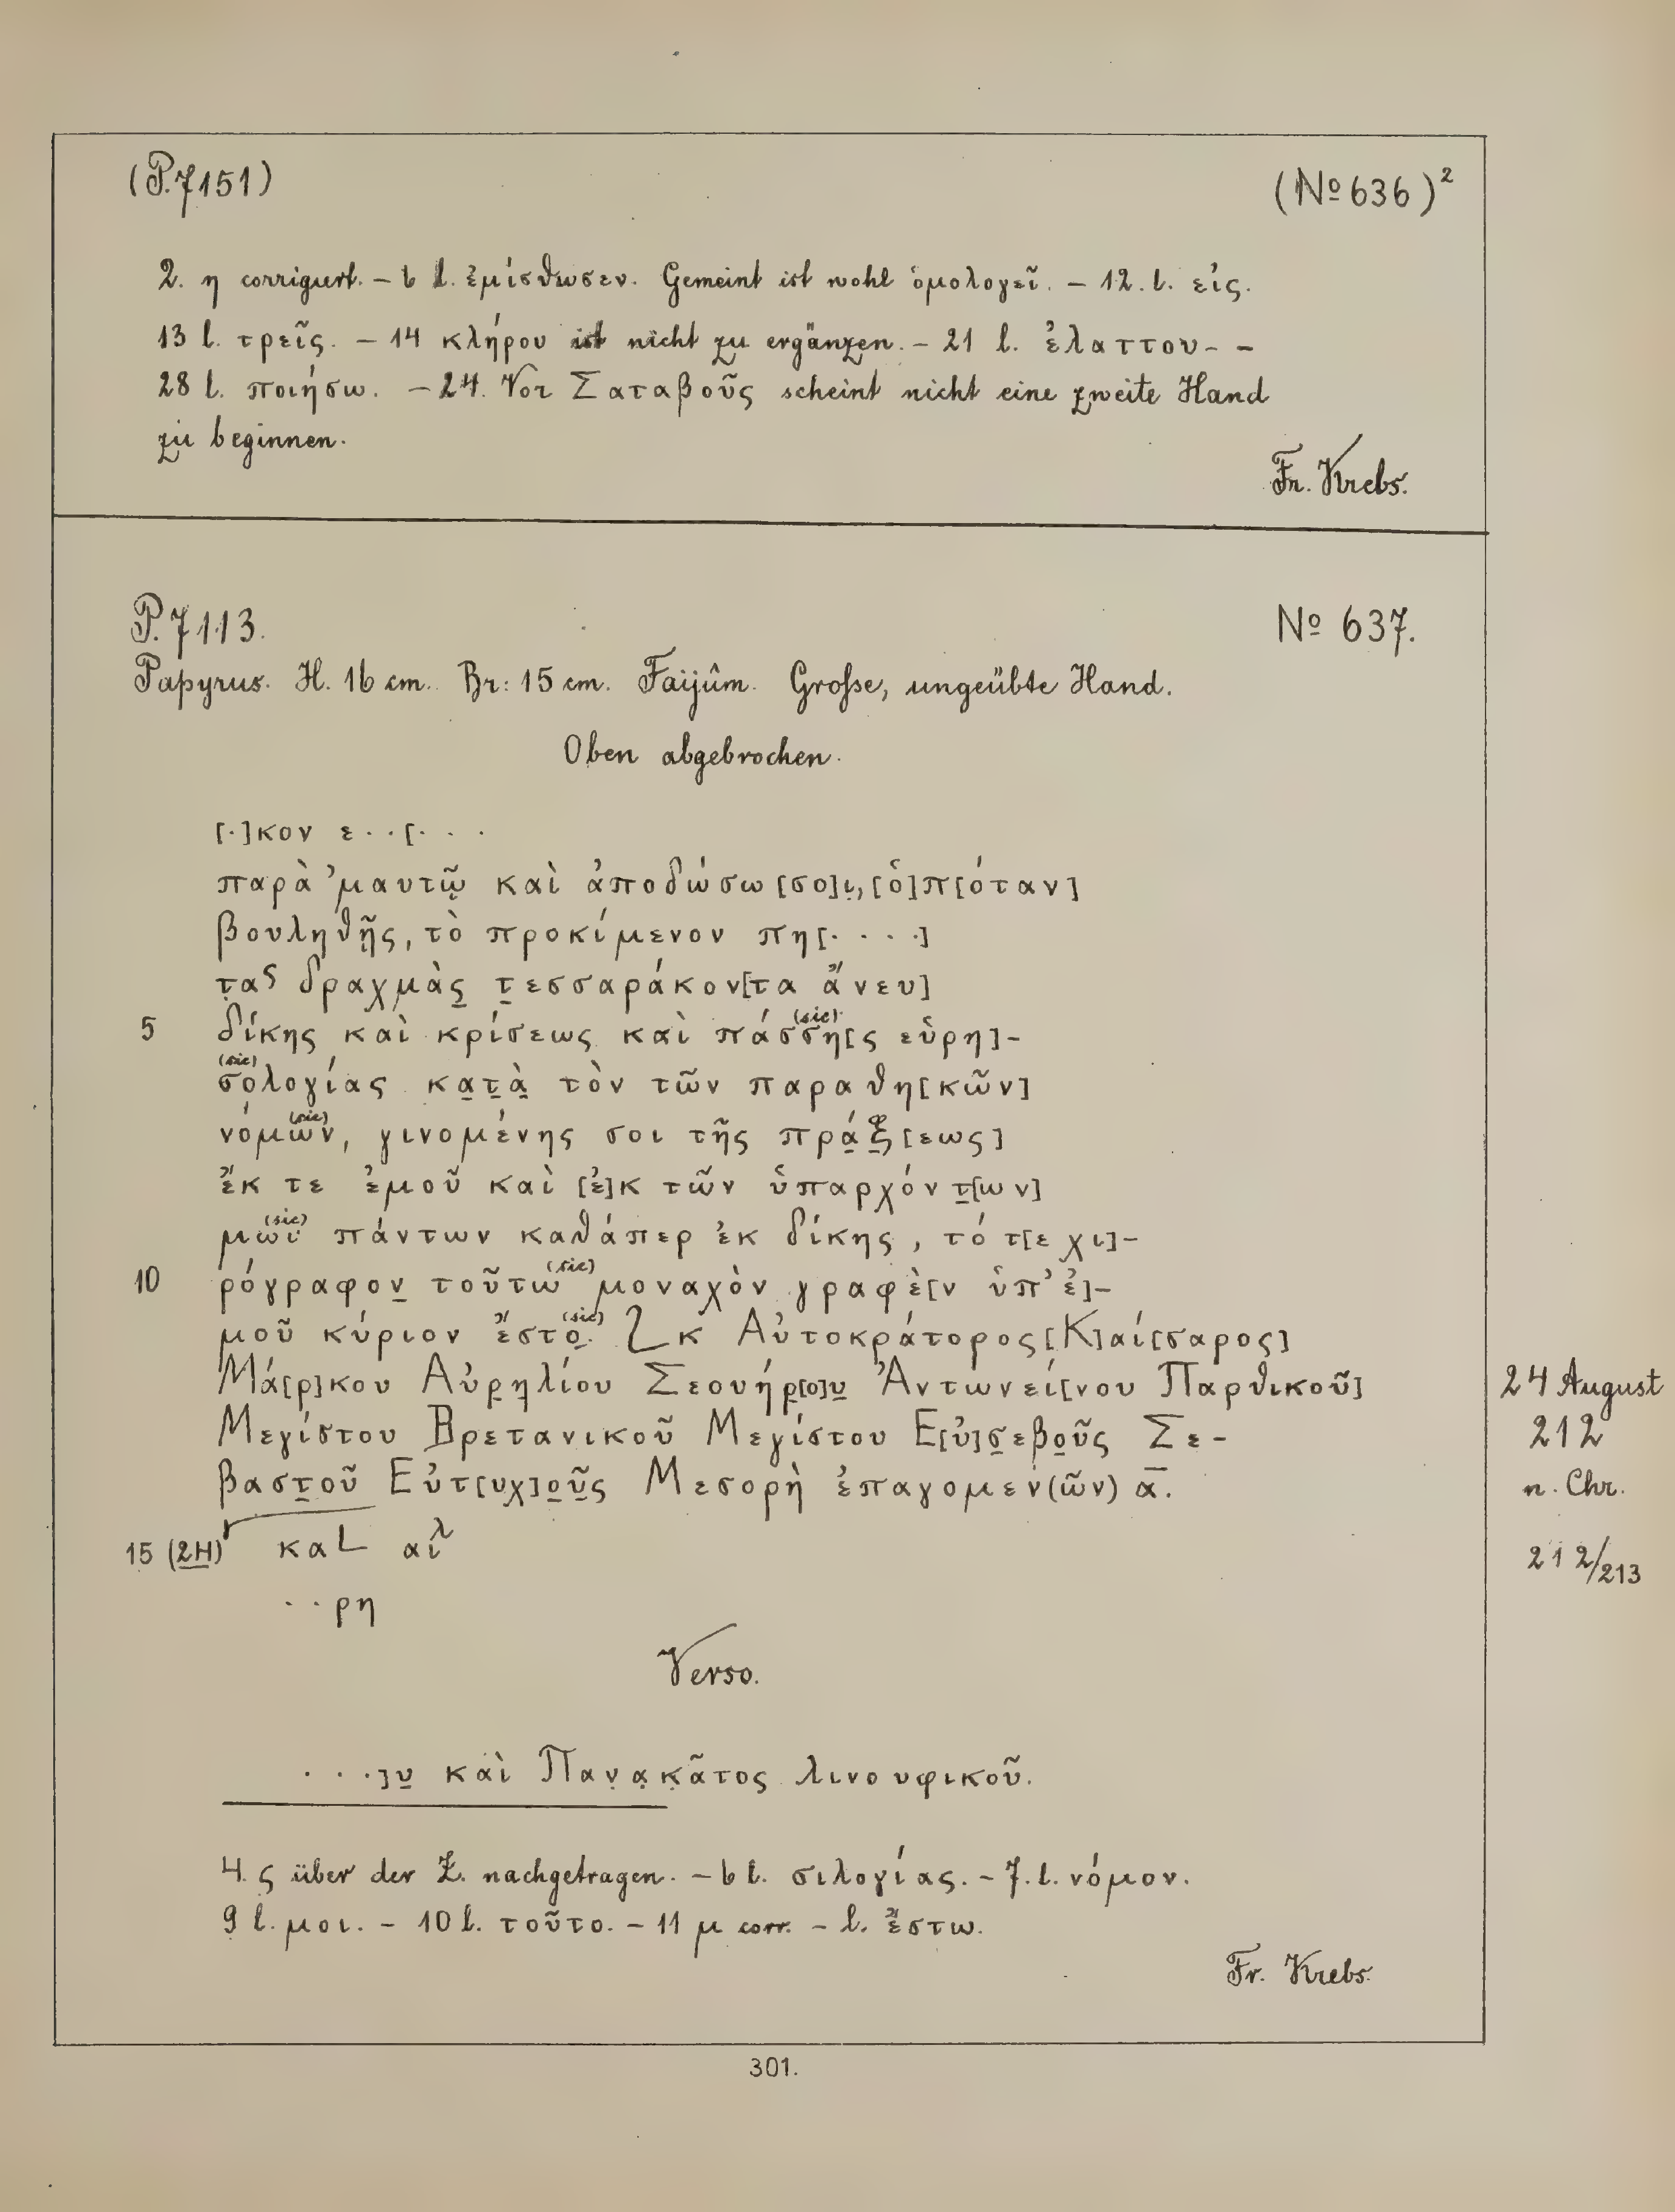 (P. 7151) (No 636)²
2. η corrigiert. – 6 l. ἐμίσθωσεν. Gemeint ist wohl ὁμολογεῖ. – 12. l. εἰς.
13 l. τρεῖς. – 14 κλήρου ist nicht zu ergänzen. – 21 l. ἐλαττου- –
28 l. ποιήσω. – 24. Vor Σαταβοῦς scheint nicht eine zweite Hand
zu beginnen.
Fr. Krebs.
P. 7113. No 637.
Papyrus. H. 16 cm. Br: 15 cm. Faijûm. Große, ungeübte Hand.
Oben abgebrochen.
[.]κον ε..[...
παρὰ ’μαυτῷ καὶ ἀποδώσω [σο]ι̣, [ὁ]π[όταν]
βουληθῇς, τὸ προκίμενον πη[....]
τ̣ας δραχμὰς̣ τ̣εσσαράκον[τα ἄνευ]
5 δίκης καὶ κρίσεως καὶ πάσση[ς (sic) εὑρη]-
(sic) σολογίας κα̣τ̣ὰ̣ τὸν τῶν παραθη[κῶν]
νόμων (sic), γινομένης σοι τῆς πρά̣ξ̣[εως]
ἔκ τε ἐμοῦ καὶ [ἐ]κ τῶν ὑπαρχόντ̣[ων]
μωι (sic) πάντων καθάπερ ἐκ δίκης, τό τ[ε χι]-
10 ρόγραφον̣ τοῦτω (sic) μοναχὸν γραφὲ[ν ὑπ’ ἐ]-
μοῦ κύριον ἔστο̣ (sic). L κ Αὐτοκράτορος [Κ]αί[σαρος]
Μά[ρ]κου Αὐρ̣η̣λίου Σεουήρ̣[ο]υ̣ Ἀντωνεί[νου Παρθικοῦ] 24 August
Μεγίστου Βρετανικοῦ Μεγίστου Ε[ὐ]σ̣εβο̣ῦς Σε- 212
βαστ̣οῦ Εὐτ[υχ]ο̣ῦ̣ς Μεσορὴ ἐπαγομέν(ων) α̅. n. Chr.
15 (2 H) κα L αἱλ 212/213
..ρη
Verso.
...]υ̣ καὶ Παν̣α̣κ̣ᾶτος λινουφικοῦ.
4. ς über der Z. nachgetragen. – 6 l. σιλογίας. – 7. l. νόμον.
9 l. μοι. – 10 l. τοῦτο. – 11 μ corr. – l. ἔστω.
Fr. Krebs.
301.